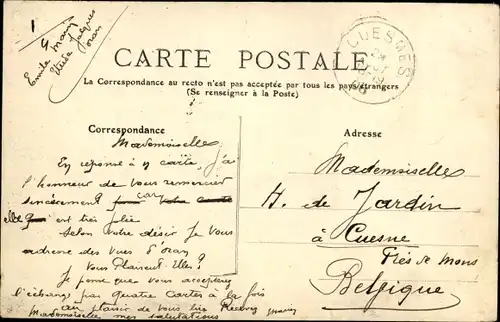 1
4 Mai
Emile
Oran
CARTE POSTALE
La Correspondance au recto n'est pas acceptée par tous les pays étrangers
(Se renseigner à la Poste)
CUESMES
Correspondance
Adresse
Mademoiselle,
En réponse à v carte, j'ai
l'honneur de vous remercier
sincèrement car
elle est très jolie
Selon votre désir Je vous
adresse des vues d'Oran
Vous Plaisent Elles ?
Je pense que vous accepterez
l'échange par Quatre Cartes à la fois
au plaisir de vous lire Recevez
Mademoiselle mes salutations
Mademoiselle
H. de Jardin
à Cuesne
Près de Mons
Belgique